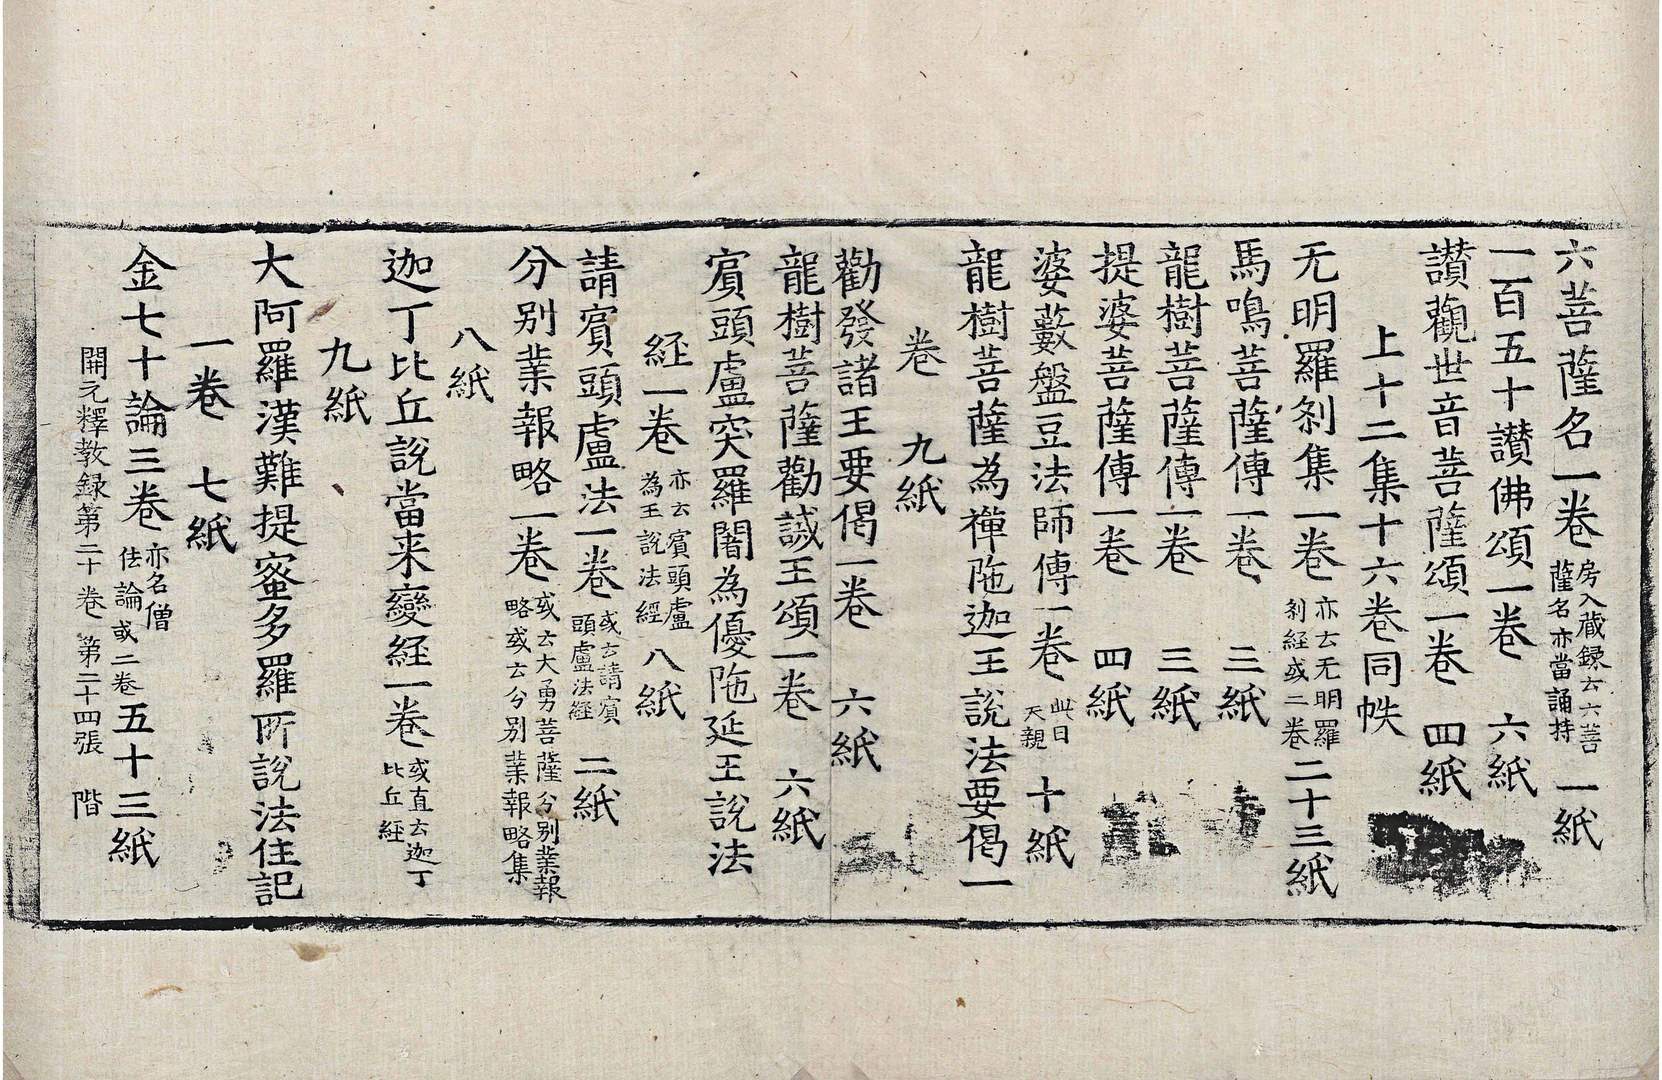 六菩薩名一卷 房入蔵録云六菩薩名亦當誦持 一紙
一百五十讃佛頌一卷 六紙
讃觀世音菩薩頌一卷 四紙
上十二集十六卷同帙
无明羅刹集一卷 亦云无明羅刹経或二卷 二十三紙
馬鳴菩薩傳一卷 三紙
龍樹菩薩傳一卷 三紙
提婆菩薩傳一卷 四紙
婆藪盤豆法師傳一卷 此曰天親 十紙
龍樹菩薩為禪陁迦王說法要偈一
卷 九紙
勸發諸王要偈一卷 六紙
龍樹菩薩勸誡王頌一卷 六紙
賔頭盧突羅闍為優陁延王說法
経一卷 亦云賔頭盧為王說法經 八紙
請賔頭盧法一卷 或云請賔頭盧法經 二紙
分別業報略一卷 或云大勇菩薩分別業報略或云分別業報略集
八紙
迦丁比丘說當来變経一卷 或直云迦丁比丘經
九紙
大阿羅漢難提蜜多羅所說法住記
一卷 七紙
金七十論三卷 亦名僧佉論或二卷 五十三紙
開元釋教録第二十卷 第二十四張 階